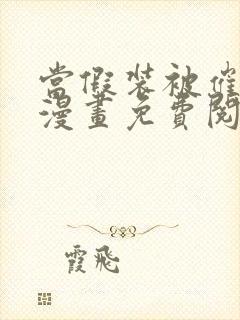 當假裝被催
漫畫免費閱
霞飛